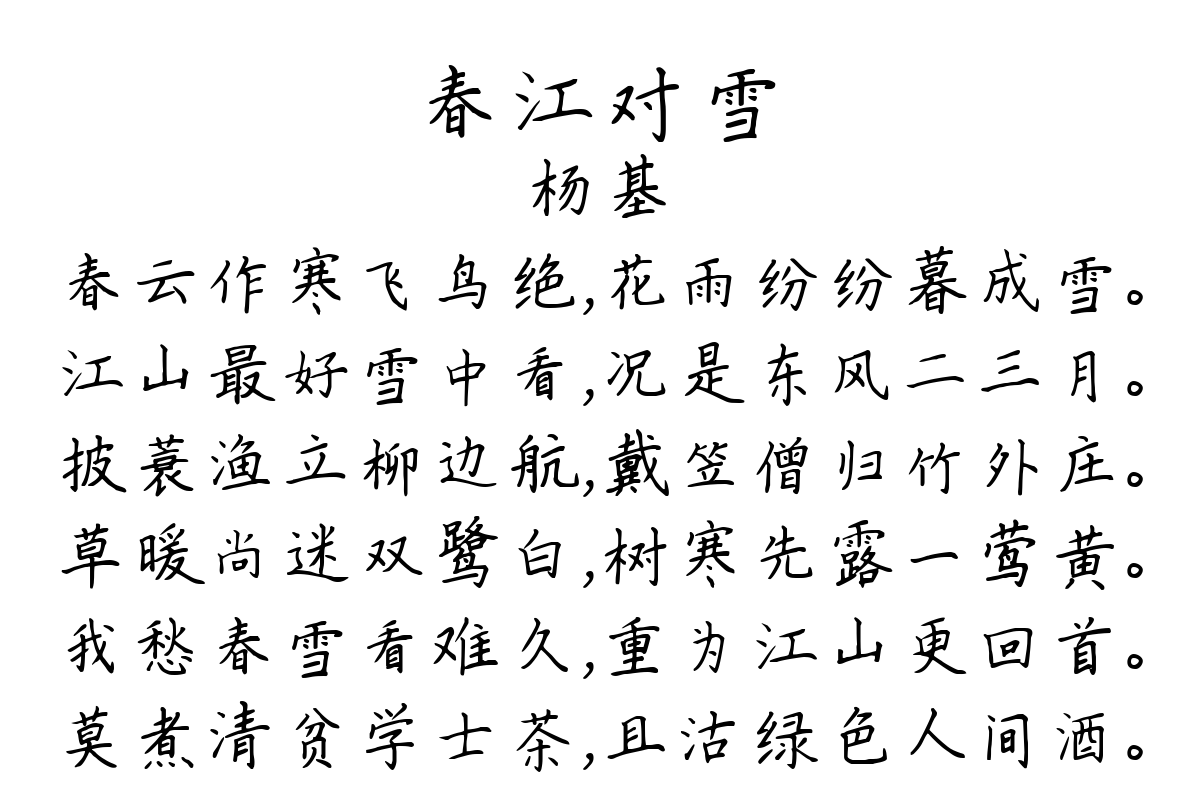 春江对雪
杨基
春云作寒飞鸟绝,花雨纷纷暮成雪。
江山最好雪中看,况是东风二三月。
披蓑渔立柳边航,戴笠僧归竹外庄。
草暖尚迷双鹭白,树寒先露一莺黄。
我愁春雪看难久,重为江山更回首。
莫煮清贫学士茶,且沽绿色人间酒。